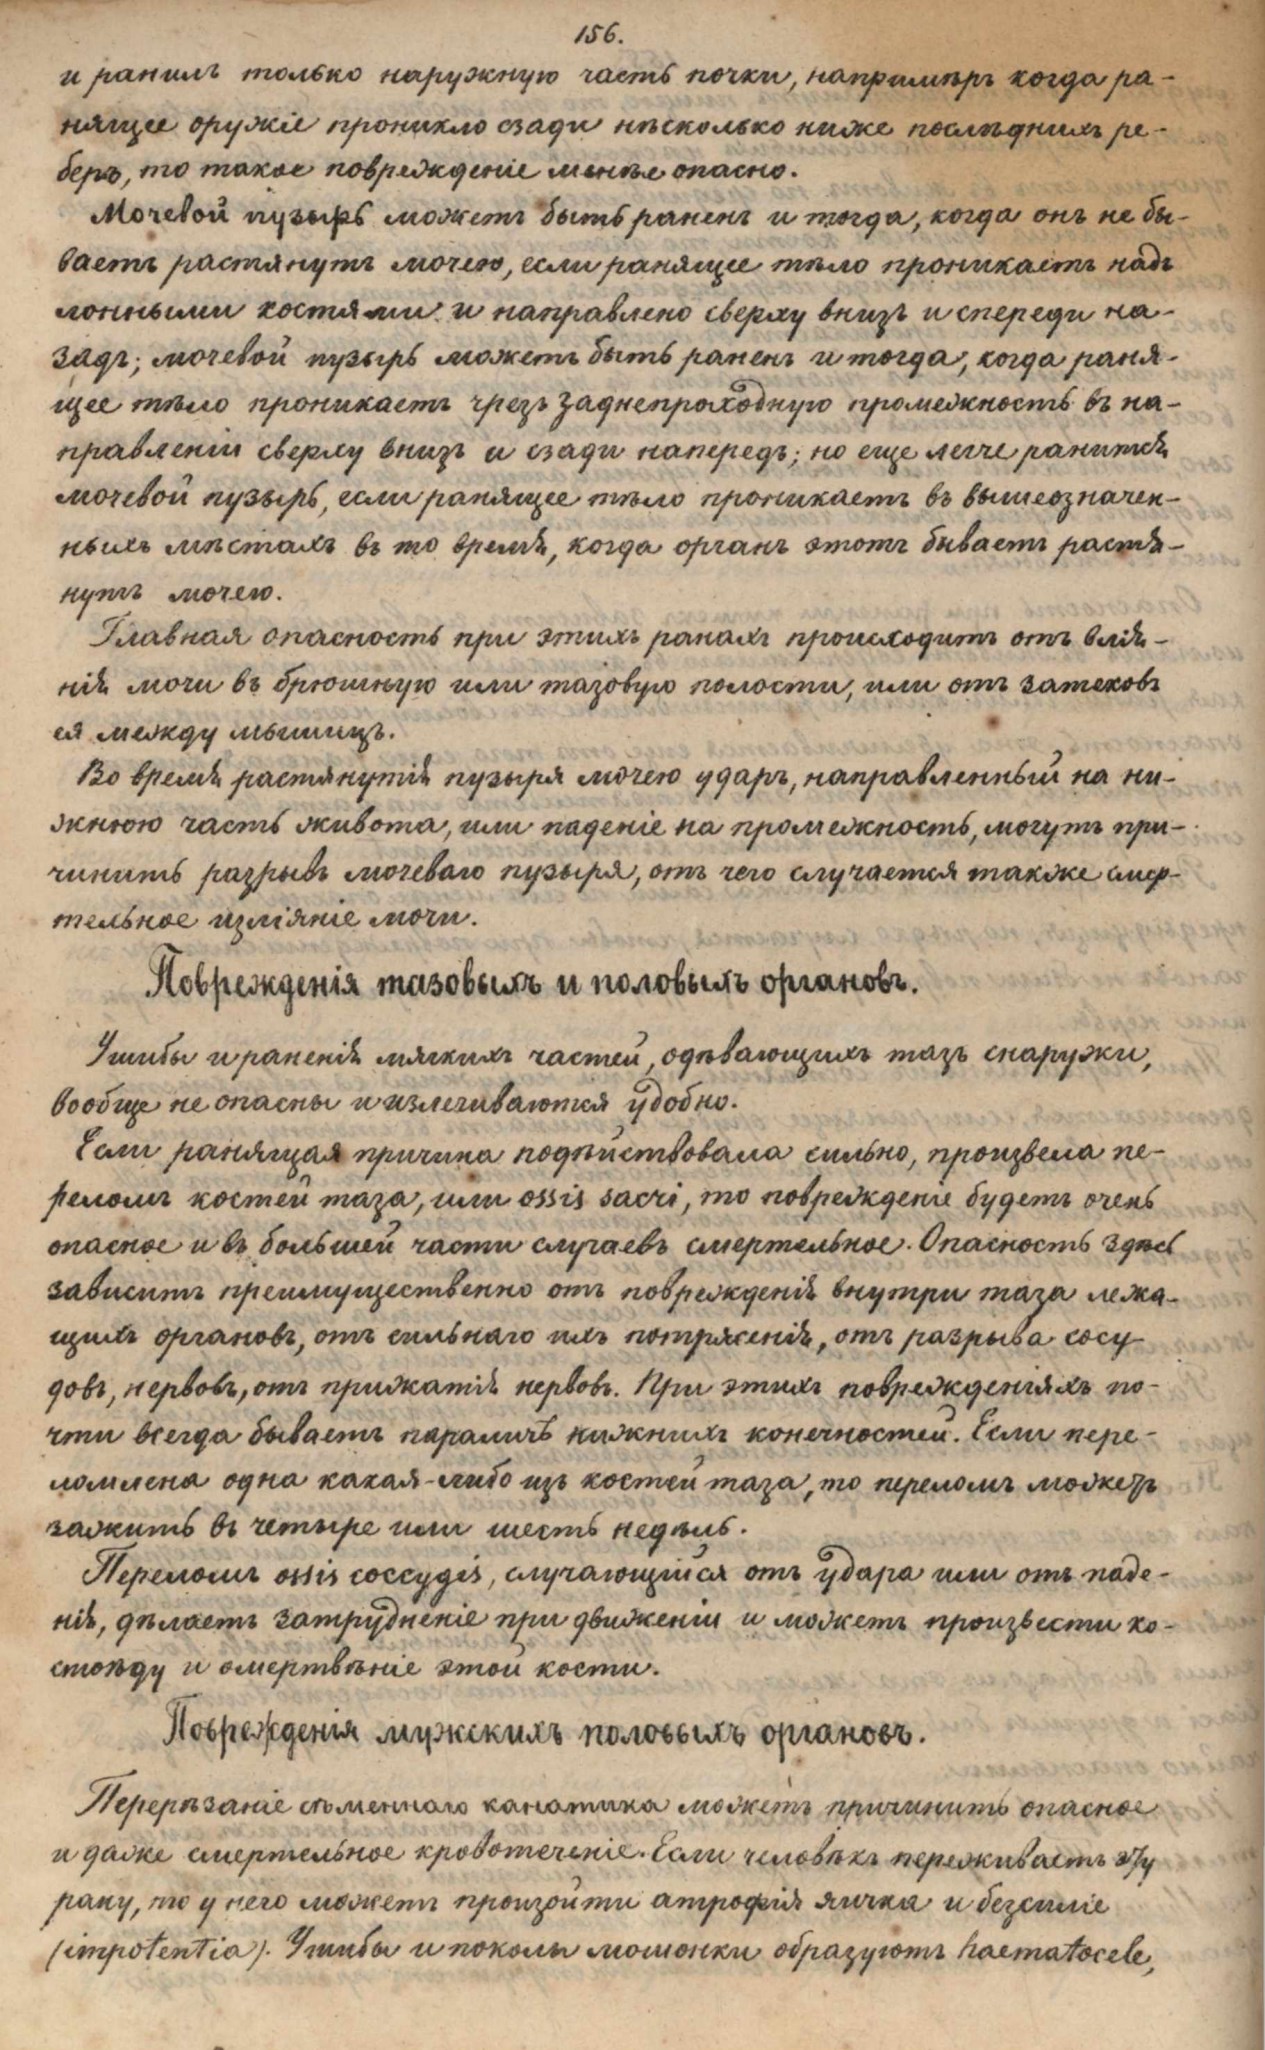 156.
и ранилъ только наружную часть почки, напримѣръ когда ра-
нящее оружіе проникло сзади нѣсколько ниже послѣднихъ ре-
беръ, то такое поврежденіе менѣе опасно.
Мочевой пузырь можетъ быть раненъ и тогда, когда онъ не бы-
ваетъ растянутъ мочею, если ранящее тѣло проникаетъ надъ
лонными костями и направлено сверху внизъ и спереди на-
задъ; мочевой пузырь можетъ быть раненъ и тогда, когда раня-
щее тѣло проникаетъ чрезъ заднепроходную промежность въ на-
правленіи сверху внизъ и сзади напередъ; но еще легче ранится
мочевой пузырь, если ранящее тѣло проникаетъ въ вышеозначен-
ныхъ мѣстахъ въ то время, когда органъ этотъ бываетъ растя-
нутъ мочею.
Главная опасность при этихъ ранахъ происходитъ отъ влія-
нія мочи въ брюшную или тазовую полости, или отъ затековъ
ея между мышицъ.
Во время растянутія пузыря мочею ударъ, направленный на ни-
жнюю часть живота, или паденіе на промежность, могутъ при-
чинить разрывъ мочеваго пузыря, отъ чего случается также смер-
тельное изліяніе мочи.
Поврежденія тазовыхъ и половыхъ органовъ.
Ушибы и раненія мягкихъ частей, одѣвающихъ тазъ снаружи,
вообще не опасны и излечиваются удобно.
Если ранящая причина подѣйствовала сильно, произвела пе-
реломъ костей таза, или ossis sacri, то поврежденіе будетъ очень
опасное и въ большей части случаевъ смертельное. Опасность здѣсь
зависитъ преимущественно отъ поврежденія внутри таза лежа-
щихъ органовъ, отъ сильнаго ихъ потрясенія, отъ разрыва сосу-
довъ, нервовъ, отъ прижатія нервовъ. При этихъ поврежденіяхъ по-
чти всегда бываетъ параличъ нижнихъ конечностей. Если пере-
ломлена одна какая-либо изъ костей таза, то переломъ можетъ
зажить въ четыре или шесть недѣль.
Переломъ ossis coccygis, случающійся отъ удара или отъ паде-
нія, дѣлаетъ затрудненіе при движеніи и можетъ произвести ко-
стоѣду и омертвѣніе этой кости.
Поврежденія мужскихъ половыхъ органовъ.
Перерѣзаніе сѣменнаго канатика можетъ причинить опасное
и даже смертельное кровотеченіе. Если человѣкъ переживаетъ эту
рану, то у него можетъ произойти атрофія яичка и безсиліе
(impotentia). Ушибы и поколы мошонки образуютъ haematocele,